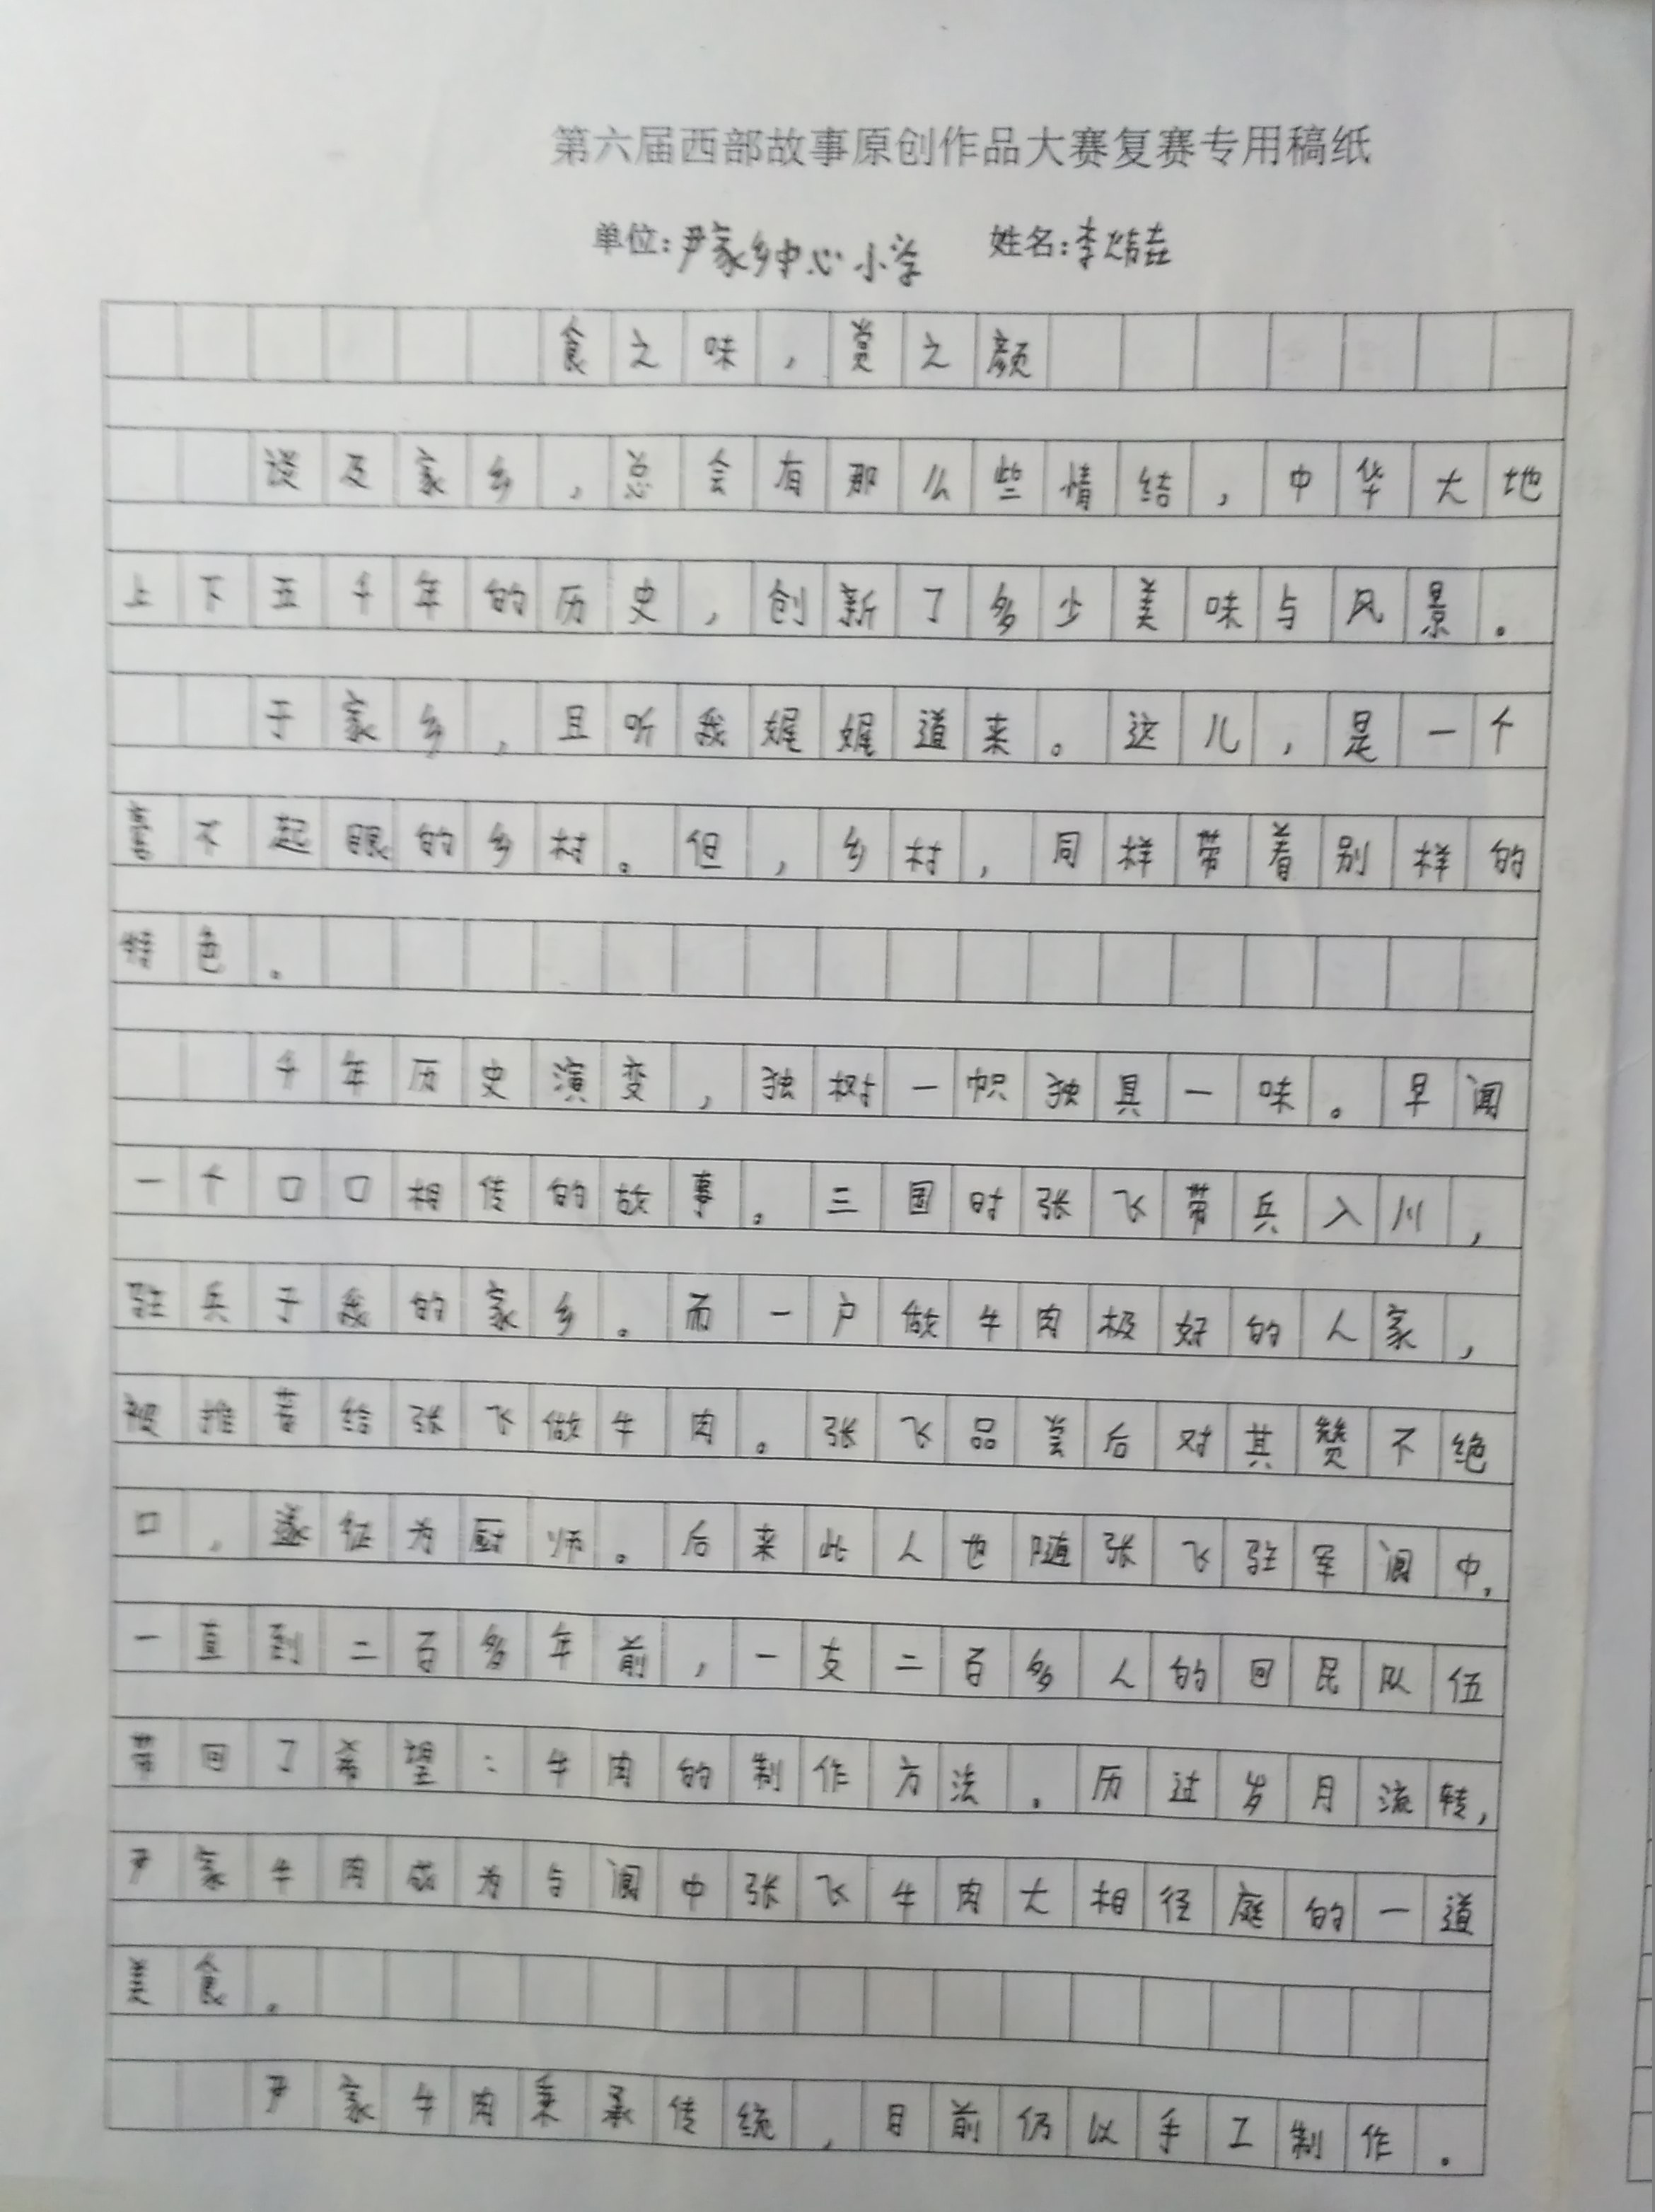 第六届西部故事原创作品大赛复赛专用稿纸
单位:尹家乡中心小学 姓名:李炜垚
食之味,赏之颜
谈及家乡,总会有那么些情结,中华大地
上下五千年的历史,创新了多少美味与风景。
于家乡,且听我娓娓道来。这儿,是一个
毫不起眼的乡村。但,乡村,同样带着别样的
特色。
千年历史演变,独树一帜独具一味。早闻
一个口口相传的故事。三国时张飞带兵入川,
驻兵于我的家乡。而一户做牛肉极好的人家,
被推荐给张飞做牛肉。张飞品尝后对其赞不绝
口,遂征为厨师。后来此人也随张飞驻军阆中,
一直到二百多年前,一支二百多人的回民队伍
带回了希望:牛肉的制作方法。历过岁月流转,
尹家牛肉成为与阆中张飞牛肉大相径庭的一道
美食。
尹家牛肉秉承传统,目前仍以手工制作。